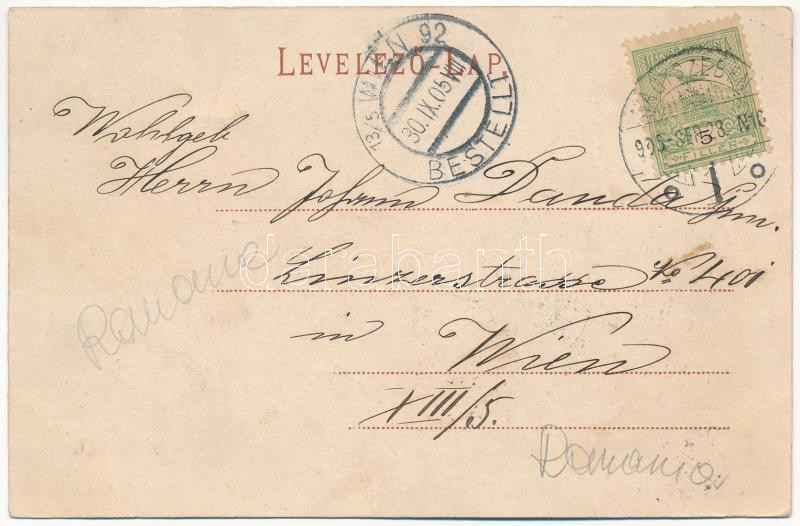 LEVELEZŐ-LAP.
13/5 WIEN 92
30.IX.05.VIII
BESTELLT
5
FILLÉR
Wohlgeb
Herrn Johann Danda jun.
Linzerstrasse No 401
in Wien
XIII/5.
Romania
Romania
darabanth